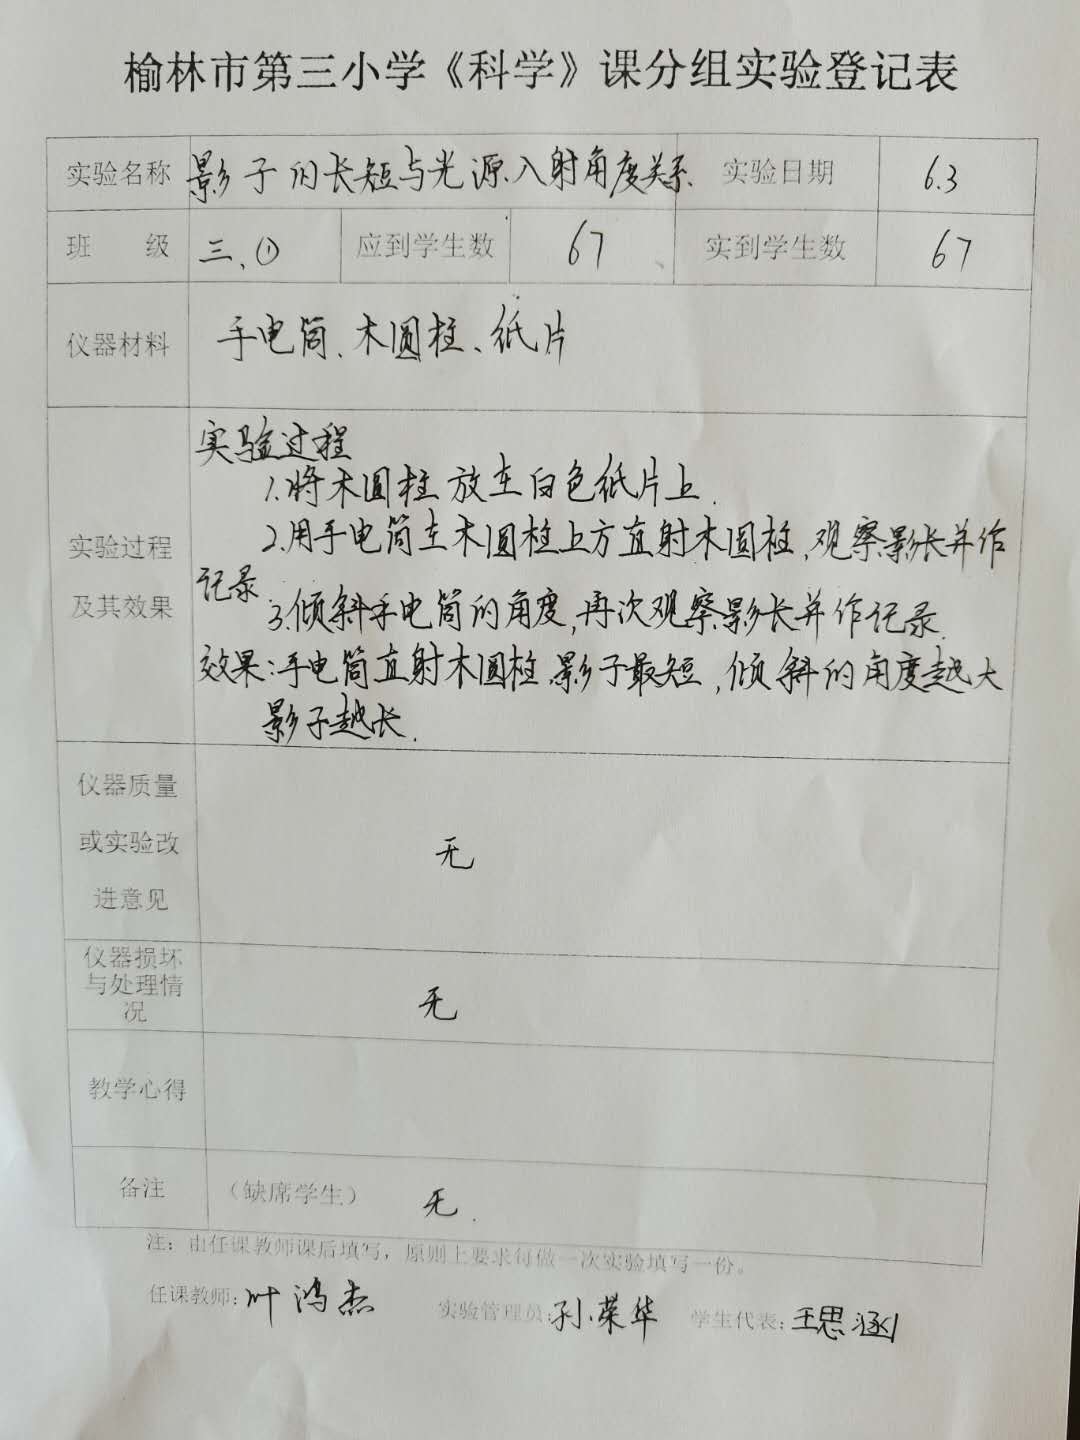 榆林市第三小学《科学》课分组实验登记表
实验名称 影子的长短与光源入射角度关系. 实验日期 6.3
班 级 三、① 应到学生数 67 实到学生数 67
仪器材料 手电筒、木圆柱、纸片
实验过程
1.将木圆柱放在白色纸片上.
实验过程 2.用手电筒在木圆柱上方直射木圆柱,观察影长并作
及其效果 记录.
3.倾斜手电筒的角度,再次观察影长并作记录.
效果:手电筒直射木圆柱影子最短,倾斜的角度越大
影子越长.
仪器质量
或实验改 无
进意见
仪器损坏
与处理情 无
况
教学心得
备注 (缺席学生) 无.
注:由任课教师课后填写,原则上要求每做一次实验填写一份。
任课教师:叶鸿杰 实验管理员:孙荣华 学生代表:王思涵